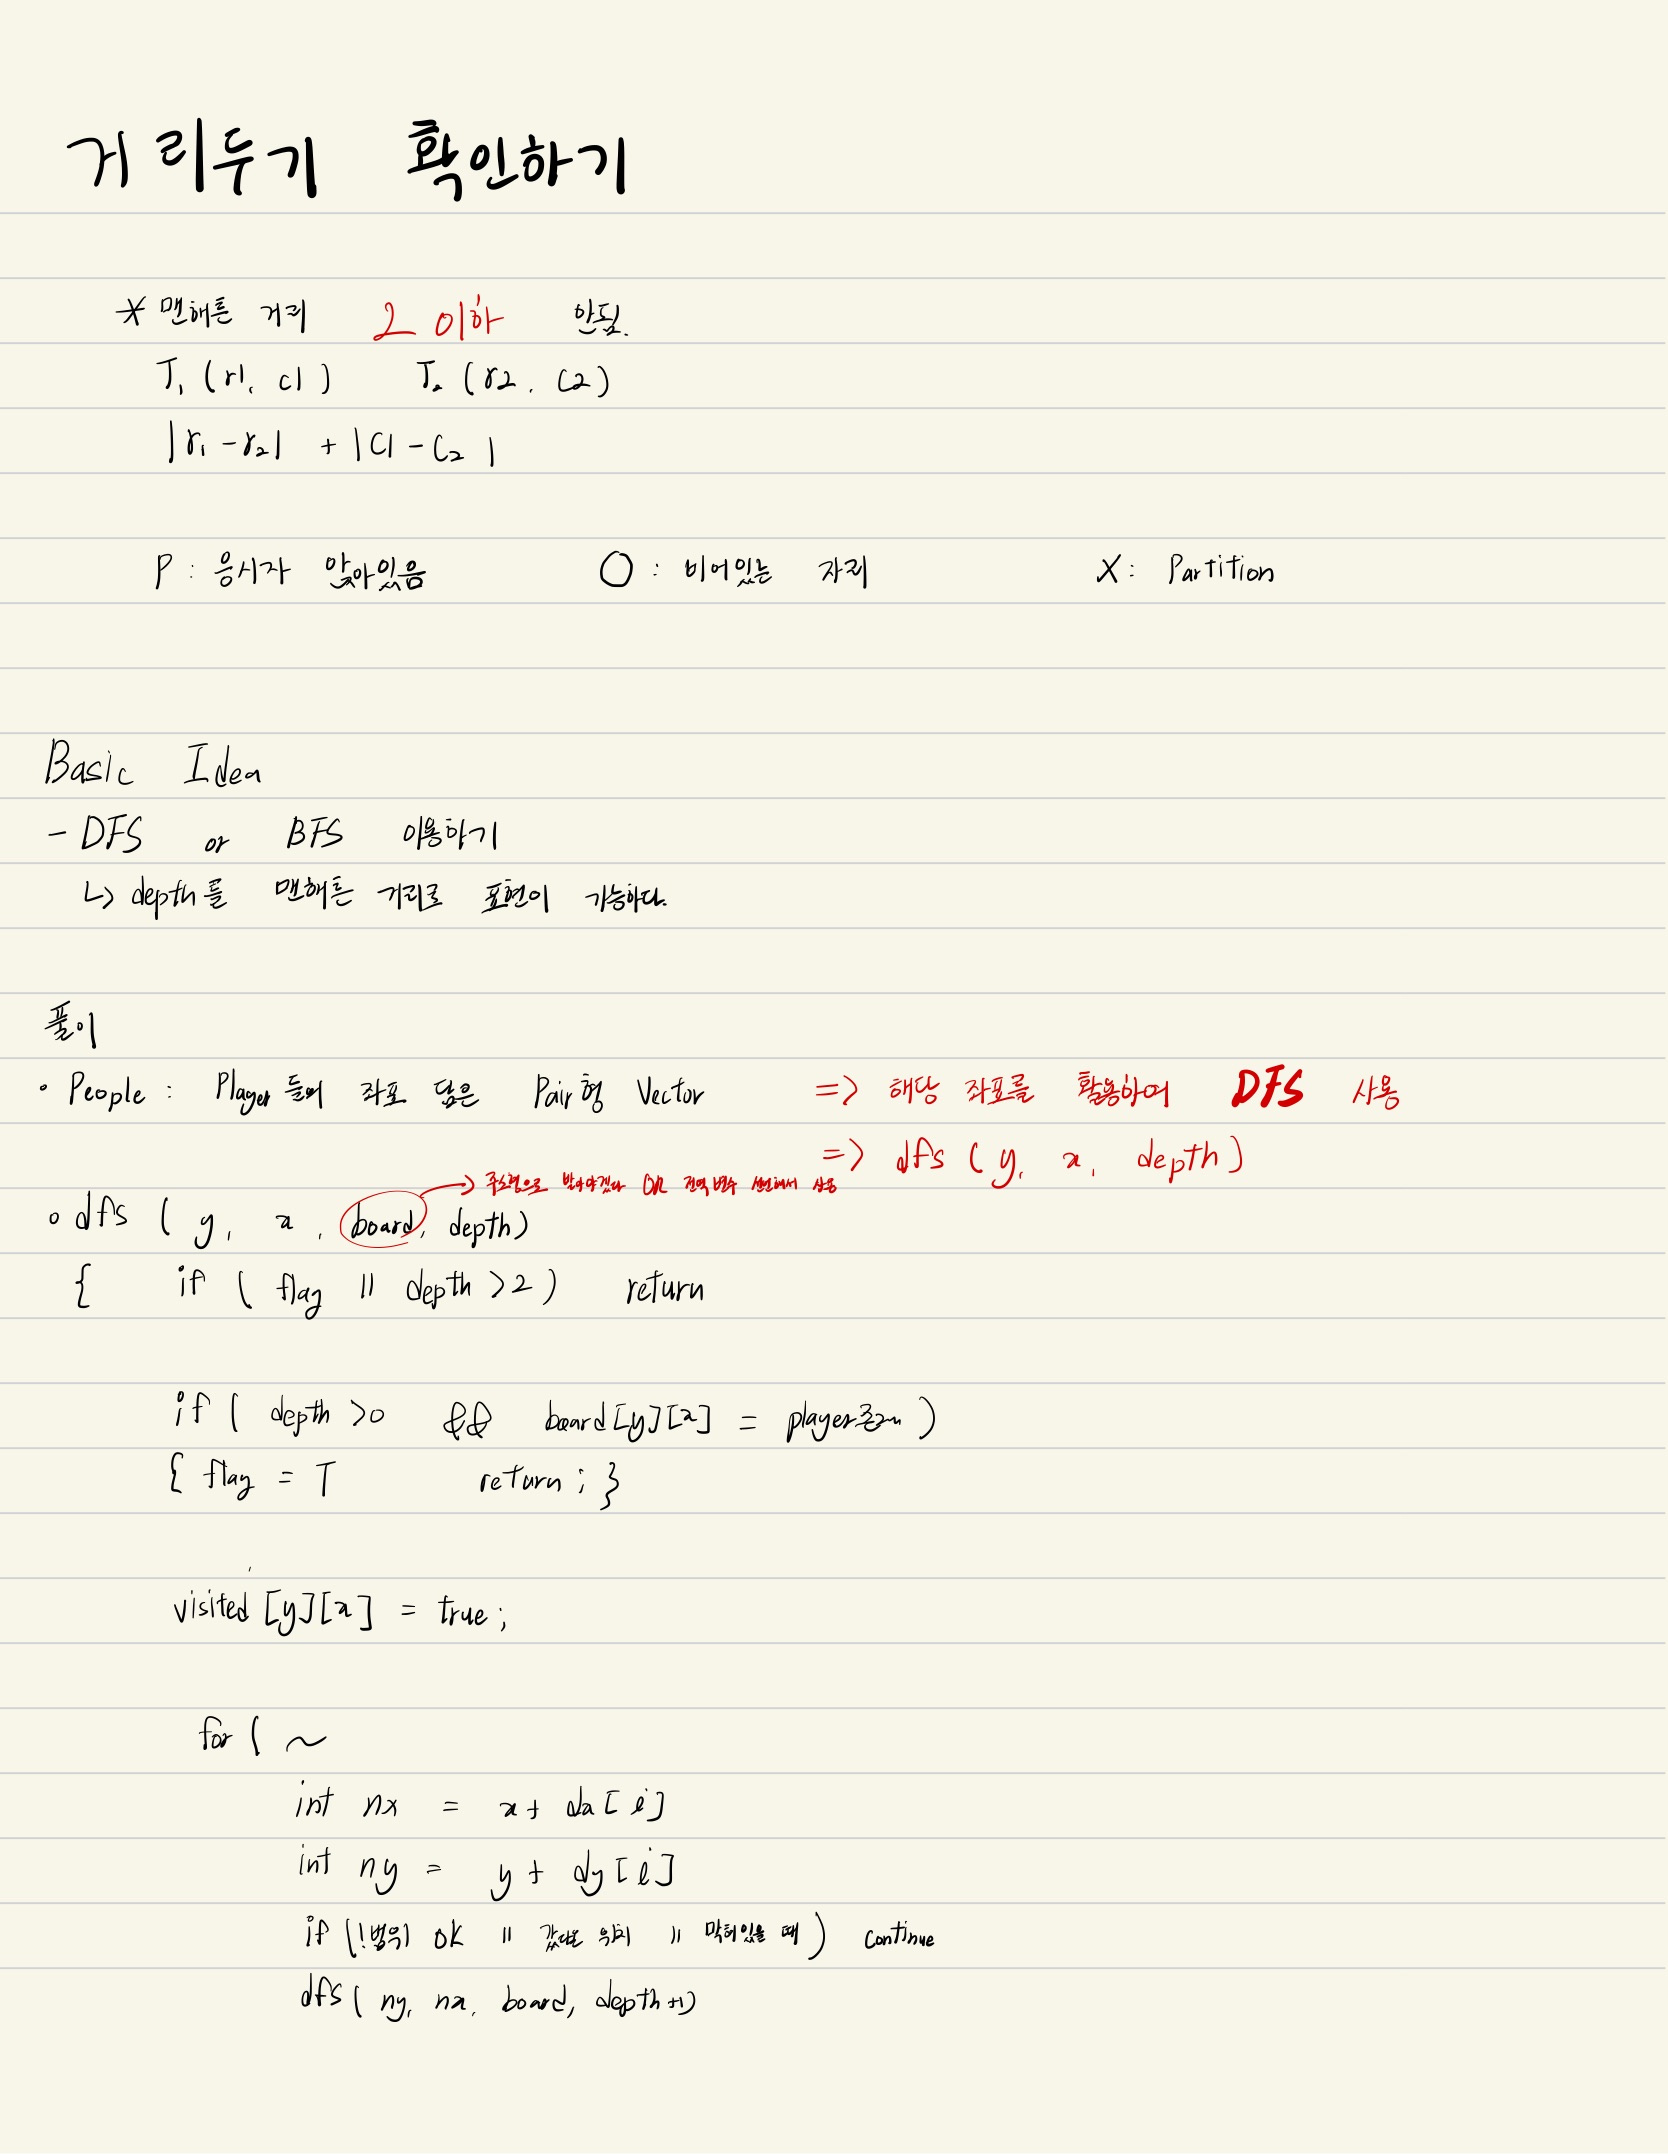 거리두기 확인하기
* 맨해튼 거리 2 이하 안됨.
T₁ (r1, c1) T₂ (r2, c2)
|r₁ - r₂| + |c1 - c₂|
P : 응시자 앉아있음 O : 비어있는 자리 X : Partition
Basic Idea
- DFS or BFS 이용하기
↳ depth를 맨해튼 거리로 표현이 가능하다.
풀이
∘ People : Player 들의 좌표 담은 Pair형 Vector => 해당 좌표를 활용하여 DFS 사용
=> dfs ( y, x, depth)
→ 주소형으로 받아야겠다 OR 전역변수 선언해서 사용
∘ dfs ( y, x, board, depth)
{ if ( flag || depth >2 ) return
if ( depth >0 && board[y][x] = player존재 )
{ flag = T return; }
visited [y][x] = true;
for ( ~
int nx = x + dx[i]
int ny = y + dy[i]
if (!범위 OK || 갔다온 위치 || 막혀있을 때) continue
dfs( ny, nx, board, depth+1)